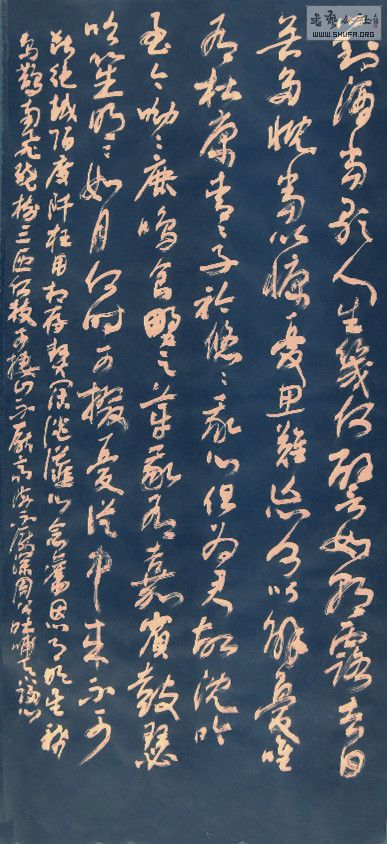 對酒當歌人生幾何譬如朝露去日
苦多慨當以慷憂思難忘何以解憂唯
有杜康青〻子衿悠〻我心但為君故沈吟
至今呦〻鹿鳴食野之苹我有嘉賓鼓瑟
吹笙明〻如月何時可掇憂從中來不可
斷絕越陌度阡枉用相存契闊談讌心念舊恩月明星稀
烏鵲南飛繞樹三匝何枝可棲山不厭高海不厭深周公吐哺天心
WWW.SHUFA.ORG